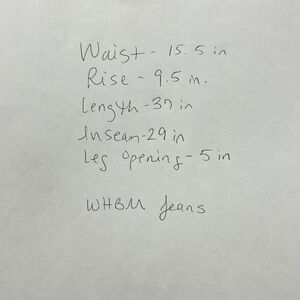 Waist - 15.5 in
Rise - 9.5 in.
Length - 37 in
Inseam - 29 in
Leg Opening - 5 in
WHBM Jeans